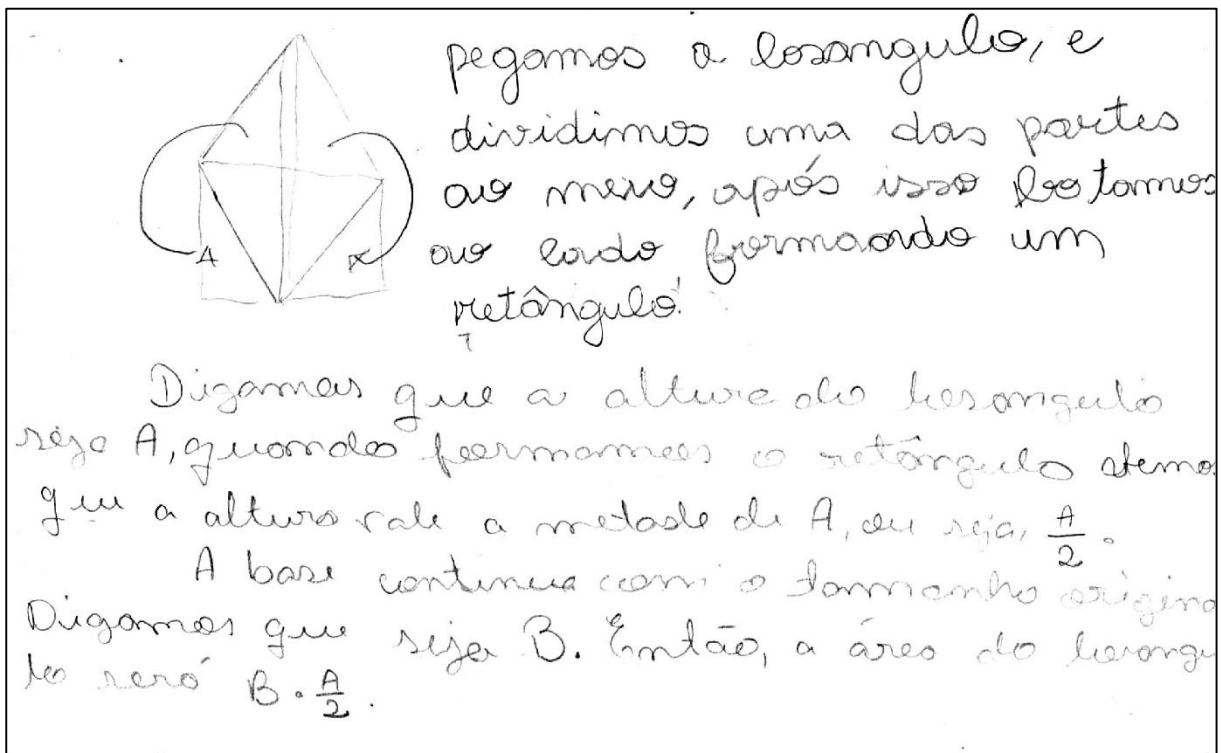 pegamos o losangulo, e
dividimos uma das partes
ao meio, após isso botamos
ao lado formaando um
retângulo.
A
A
Digamos que a altura do losangulo
seja A, quando formamos o retângulo temos
que a altura vale a metade de A, ou seja, A/2.
A base continua com o tammanho origina
Digamos que seja B. Então, a área do losangu
lo será B . A/2.